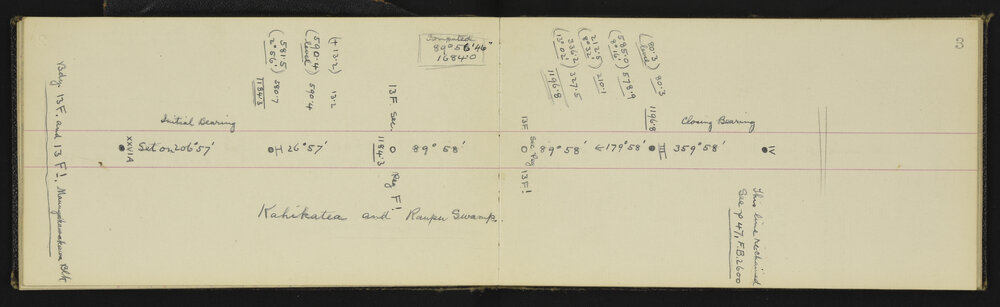 3
Bdy. 13 F. and 13 F1. Maungakawakawa Blk
Initial Bearing
XXVIA
Set on 206°57'
II
26°57'
(581.5)
(2°56')
580.7
1184.3
(590.4)
(level)
590.4
(+13.2)
13.2
13 F Sec.
1184.3
Peg F1
89° 58'
Computed
89°56'46"
1684.0
Kahikatea and Raupu Swamp.
13F Sec Peg 13F1
89°58'
←179°58'
III
359°58'
Closing Bearing
IV
(336.2)
327.5
1196.8
(212.5)
210.1
(585.0)
578.9
(80.3)
(level)
80.3
1196.8
This line rechained
See p 47, F.B. 2600